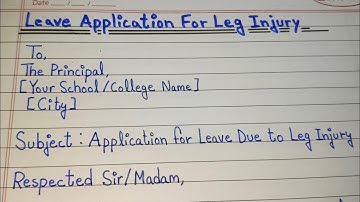 Date __/__/__
Leave Application For Leg Injury
To,
The Principal,
[Your School/College Name]
[City]
Subject : Application for Leave Due to Leg Injury
Respected Sir/Madam,